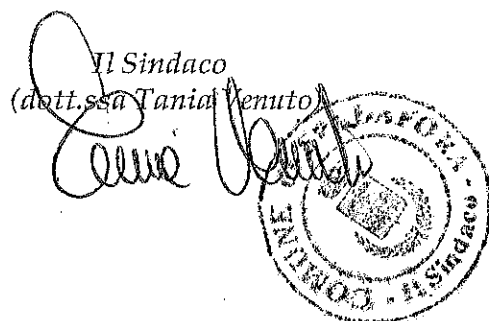 Il Sindaco
(dott.ssa Tania Venuto)
Tania Venuto
COMUNE
- Il Sindaco -